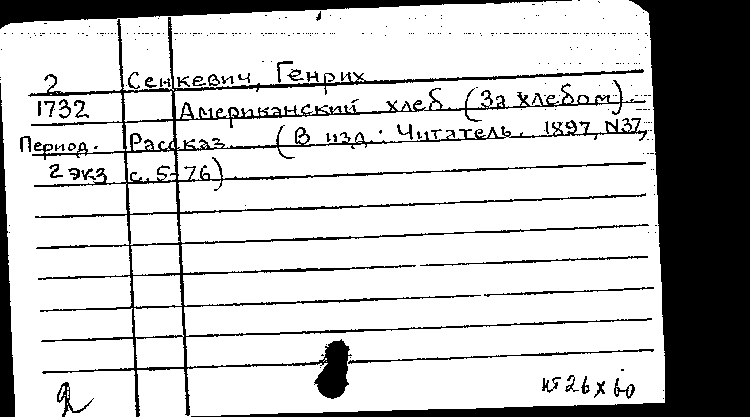 2 Сенкевич, Генрих
1732 Американский хлеб (За хлебом).
Период. Рассказ. (В изд.: Читатель. 1897, N37,
2 экз с. 5-76)
26 х 60